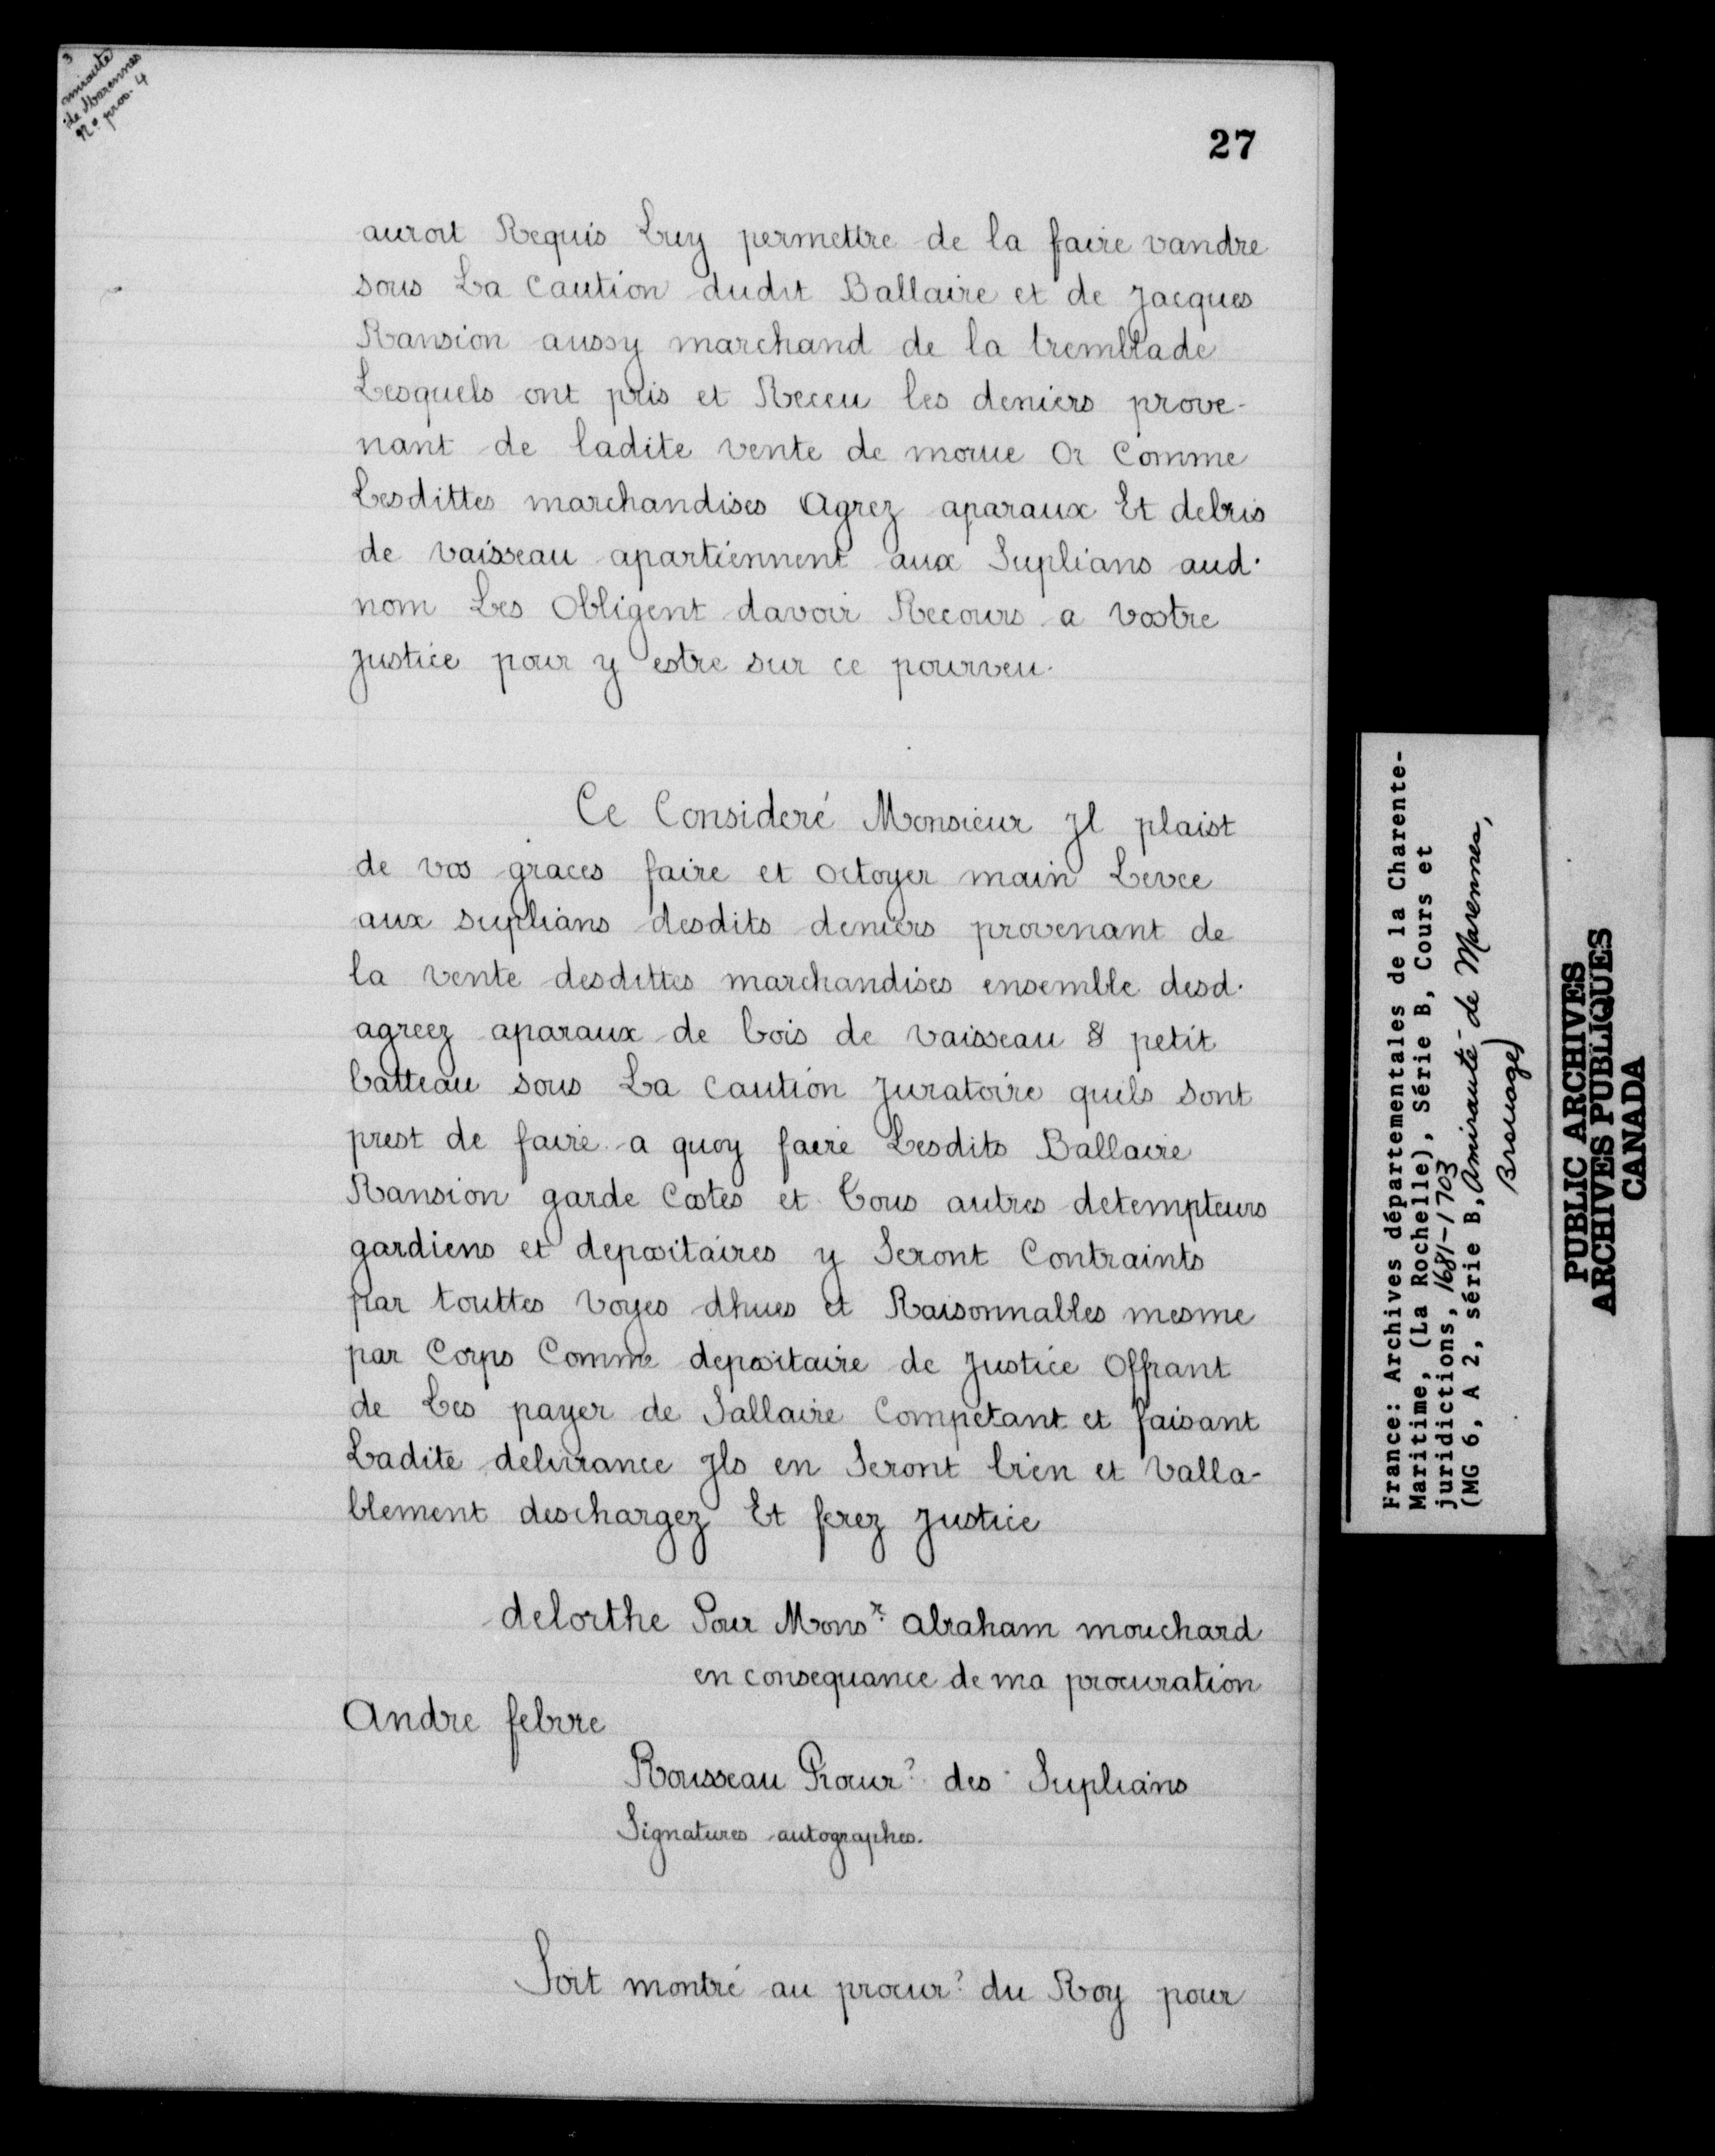 3
amirauté
de Marennes
No. prov. 4
27
auroit Requis Luy permettre de la faire vandre
sous La Caution dudit Ballaire et de Jacques
Ransion aussy marchand de la tremblade
Lesquels ont pris et Receu les deniers prove-
nant de ladite vente de morue Or Comme
Lesdittes marchandises Agrez aparaux Et debris
de vaisseau apartiennent aux Suplians aud.
nom Les Obligent davoir Recours a Vostre
justice pour y estre sur ce pourveu.
Ce Consideré Monsieur Jl plaist
de vos graces faire et octoyer main Levee
aux suplians desdits deniers provenant de
la vente desdittes marchandises ensemble desd.
agreez aparaux de bois de vaisseau & petit
batteau sous La Caution Juratoire quils sont
prest de faire a quoy faire Lesdits Ballaire
Ransion garde Costes et Tous autres detempteurs
gardiens et depositaires y Seront Contraints
par touttes Voyes dhues et Raisonnables mesme
par Corps Comme depositaire de Justice Offrant
de Les payer de Sallaire Competant et faisant
Ladite delivrance Jls en Seront bien et Valla-
blement deschargez Et ferez Justice
delorthe Pour Monsr. abraham mouchard
en consequance de ma procuration
Andre febvre
Rousseau Procur. des Suplians
Signatures autographes.
Soit montré au procur. du Roy pour
France: Archives départementales de la Charente-
Maritime, (La Rochelle), Série B, Cours et
juridictions, 1681-1703
(MG 6, A 2, série B, Amirauté de Marennes,
Brouage)
PUBLIC ARCHIVES
ARCHIVES PUBLIQUES
CANADA